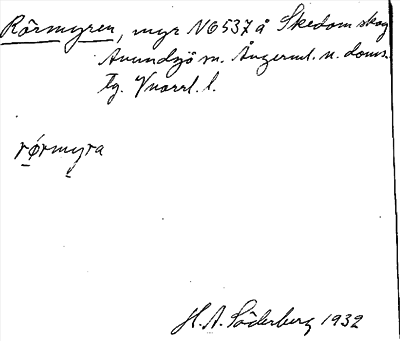 Rörmyren, myr NO 537 å Skedom skog
Anundsjö sn. Ångerml. n. doms.
Tg. Vnorrl. l.
rǿrmyra
H. A. Söderberg 1932